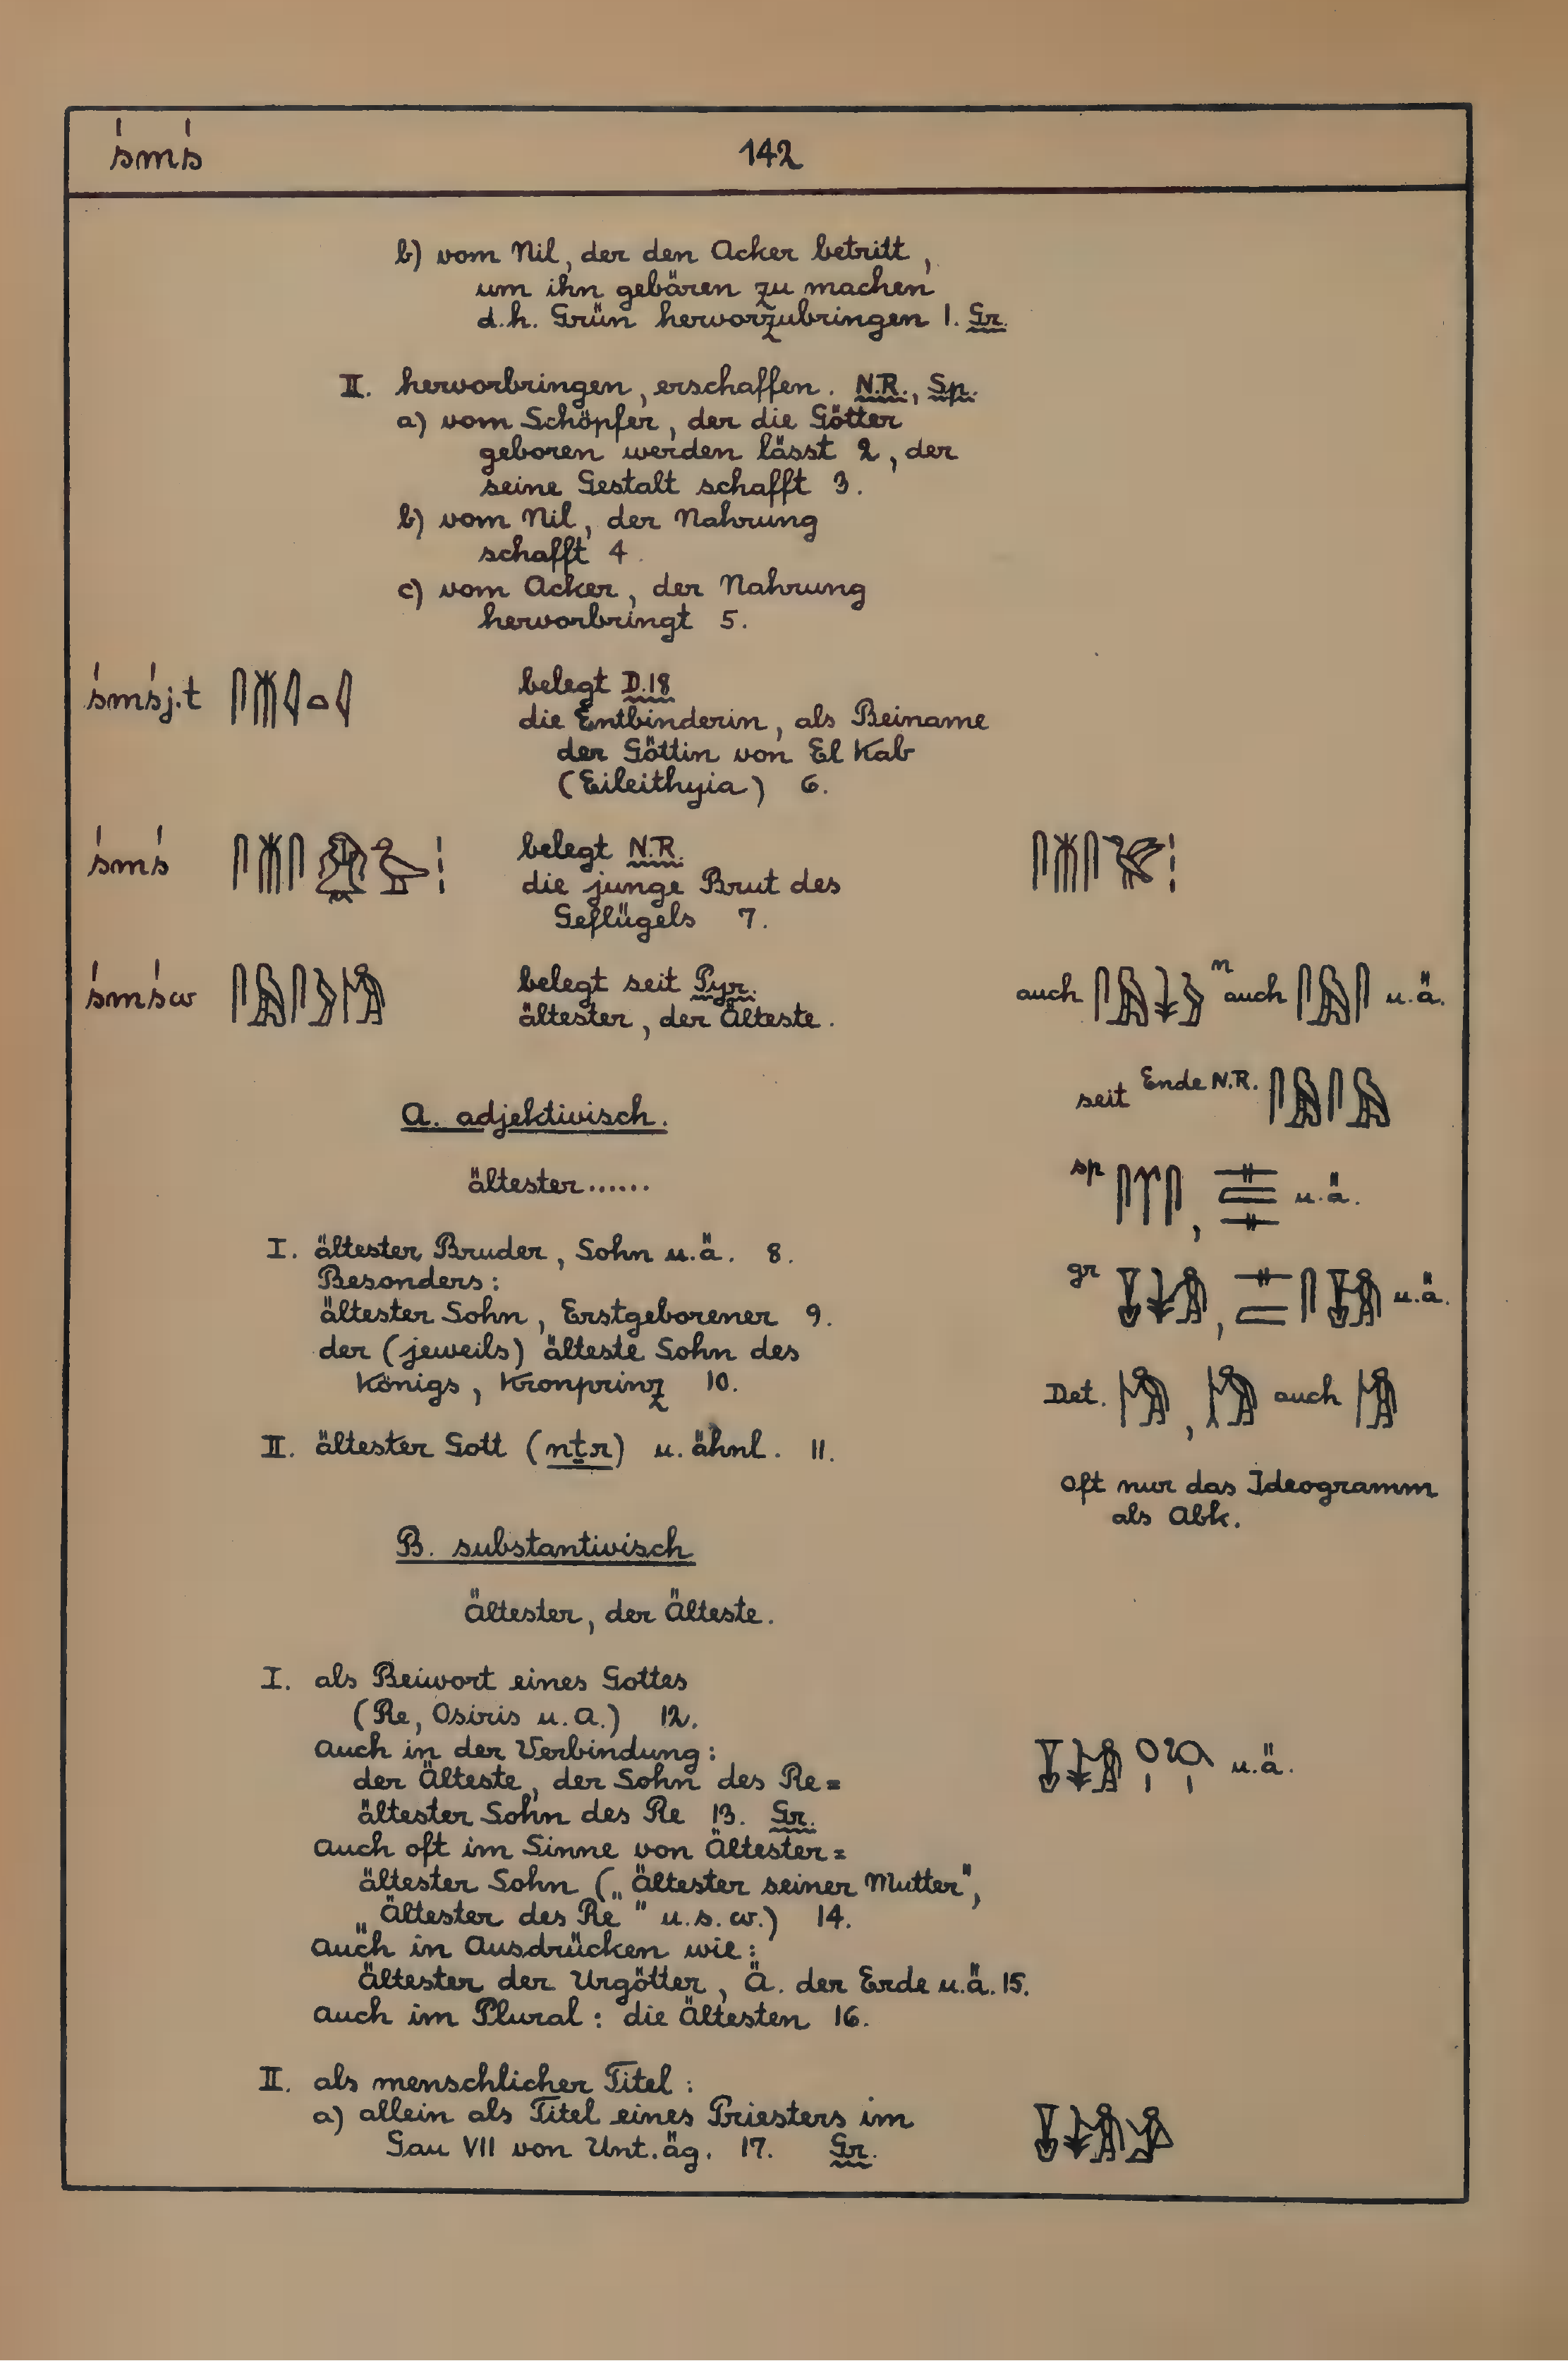 śmś 142
b) vom Nil, der den Acker betritt,
um ihn gebären zu machen
d.h. Grün hervorzubringen 1. Gr.
II. hervorbringen, erschaffen. N.R., Sp.
a) vom Schöpfer, der die Götter
geboren werden lässt 2, der
seine Gestalt schafft 3.
b) vom Nil, der Nahrung
schafft 4.
c) vom Acker, der Nahrung
hervorbringt 5.
śmśj.t belegt D.18
die Entbinderin, als Beiname
der Göttin von El Kab
(Eileithyia) 6.
śmś belegt N.R.
die junge Brut des
Geflügels 7.
śmśw belegt seit Pyr. auch n auch u.ä.
ältester, der Älteste.
seit Ende N.R.
A. adjektivisch.
ältester......
sp , u.ä.
I. ältester Bruder, Sohn u.ä. 8.
Besonders:
gr , u.ä.
ältester Sohn, Erstgeborener 9.
der (jeweils) älteste Sohn des
Königs, Kronprinz 10.
Det. , auch
II. ältester Gott (nṯr) u. ähnl. 11.
Oft nur das Ideogramm
als Abk.
B. substantivisch
ältester, der Älteste.
I. als Beiwort eines Gottes
(Re, Osiris u.a.) 12.
Auch in der Verbindung:
der Älteste, der Sohn des Re = u.ä.
ältester Sohn des Re 13. Gr.
Auch oft im Sinne von Ältester =
ältester Sohn („Ältester seiner Mutter",
„Ältester des Re" u.s.w.) 14.
Auch in Ausdrücken wie:
Ältester der Urgötter, Ä. der Erde u.ä. 15.
Auch im Plural: die Ältesten 16.
II. als menschlicher Titel:
a) allein als Titel eines Priesters im
Gau VII von Unt.äg. 17. Gr.